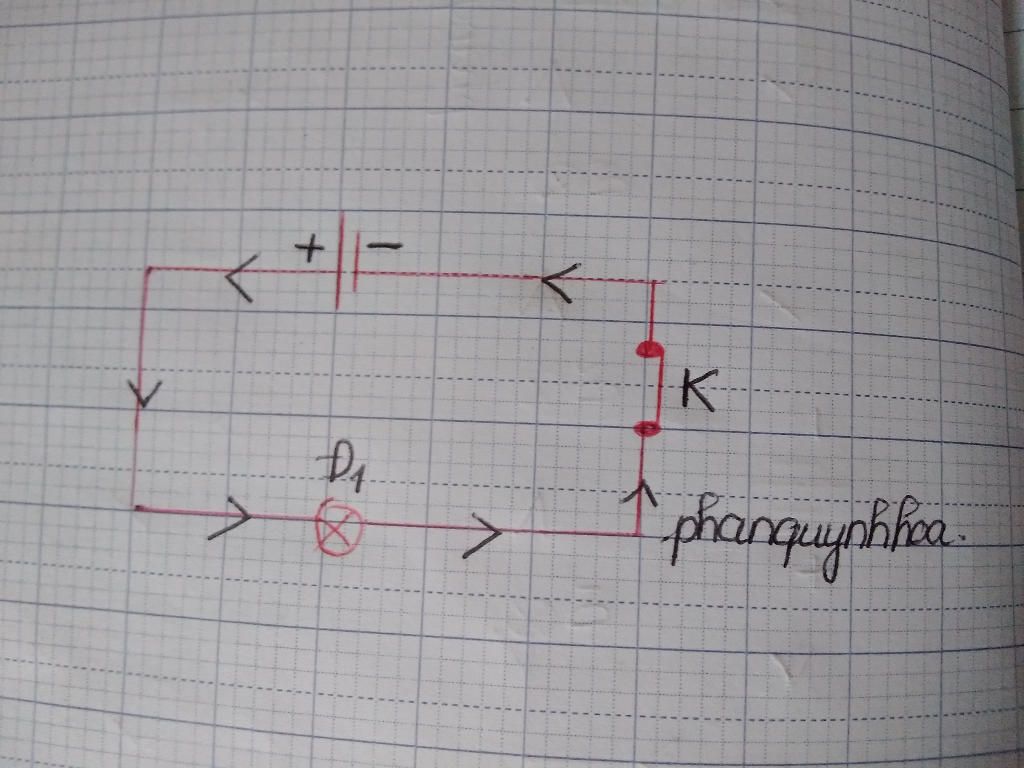 + -
K
Đ1
phanquynhhoa.